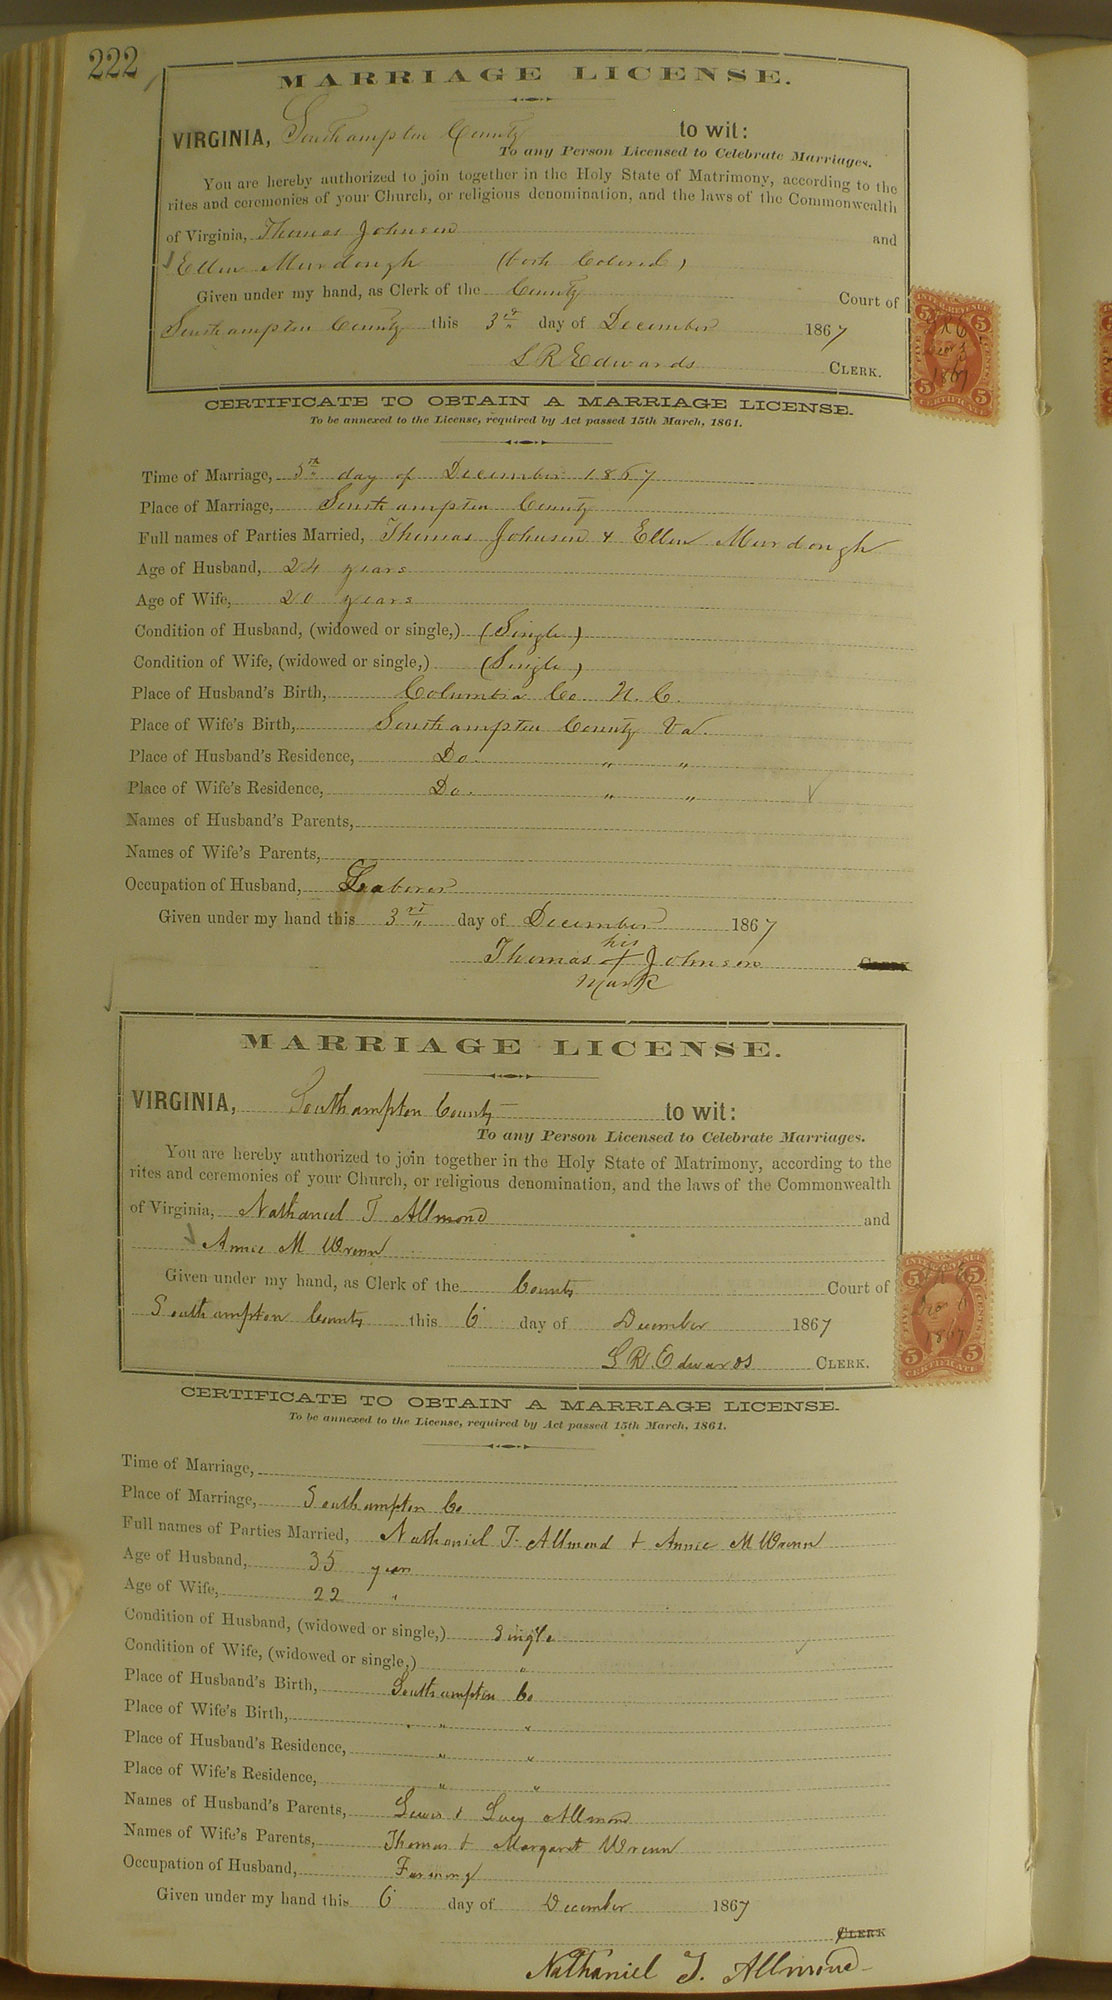 222
MARRIAGE LICENSE.
VIRGINIA, Southampton County to wit:
To any Person Licensed to Celebrate Marriages.
You are hereby authorized to join together in the Holy State of Matrimony, according to the
rites and ceremonies of your Church, or religious denomination, and the laws of the Commonwealth
of Virginia, Thomas Johnson and
Ellen Murdough (both Colored)
Given under my hand, as Clerk of the County Court of
Southampton County this 3rd day of December 1867
L R Edwards CLERK.
CERTIFICATE TO OBTAIN A MARRIAGE LICENSE.
To be annexed to the License, required by Act passed 15th March, 1861.
Time of Marriage, 5th day of December 1867
Place of Marriage, Southampton County
Full names of Parties Married, Thomas Johnson & Ellen Murdough
Age of Husband, 24 years
Age of Wife, 20 years
Condition of Husband, (widowed or single,) (Single)
Condition of Wife, (widowed or single,) (Single)
Place of Husband's Birth, Columbia Co. N. C.
Place of Wife's Birth, Southampton County Va.
Place of Husband's Residence, Do. " "
Place of Wife's Residence, Do. " "
Names of Husband's Parents,
Names of Wife's Parents,
Occupation of Husband, Laborer
Given under my hand this 3rd day of December 1867
his
Thomas + Johnson CLERK
mark
MARRIAGE LICENSE.
VIRGINIA, Southampton County to wit:
To any Person Licensed to Celebrate Marriages.
You are hereby authorized to join together in the Holy State of Matrimony, according to the
rites and ceremonies of your Church, or religious denomination, and the laws of the Commonwealth
of Virginia, Nathaniel T Allmond and
Annie M Wrenn
Given under my hand, as Clerk of the County Court of
Southampton County this 6 day of December 1867
L R Edwards CLERK.
CERTIFICATE TO OBTAIN A MARRIAGE LICENSE.
To be annexed to the License, required by Act passed 15th March, 1861.
Time of Marriage,
Place of Marriage, Southampton Co
Full names of Parties Married, Nathaniel T. Allmond & Annie M Wrenn
Age of Husband, 35 years
Age of Wife, 22 "
Condition of Husband, (widowed or single,) Single
Condition of Wife, (widowed or single,) "
Place of Husband's Birth, Southampton Co
Place of Wife's Birth, " "
Place of Husband's Residence, " "
Place of Wife's Residence, " "
Names of Husband's Parents, Lewis & Lucy Allmond
Names of Wife's Parents, Thomas & Margaret Wrenn
Occupation of Husband, Farming
Given under my hand this 6 day of December 1867
CLERK
Nathaniel T. Allmond